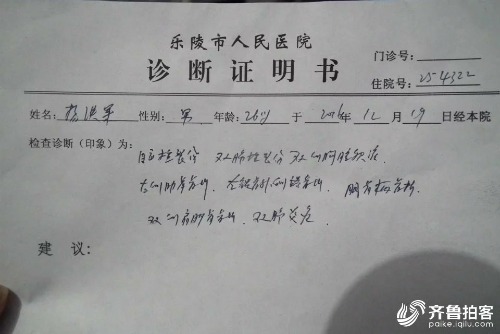 乐陵市人民医院
诊断证明书
门诊号:
住院号: 254322
姓名: 杨洪军 性别: 男 年龄: 26岁 于 2016年 12月 19日经本院
检查诊断(印象)为:
双肺挫裂伤 双侧胸腔积液
左侧肋骨骨折 胸骨柄骨折
双侧肩胛骨骨折 双肺炎症
建 议:
齐鲁拍客
paike.iqilu.com